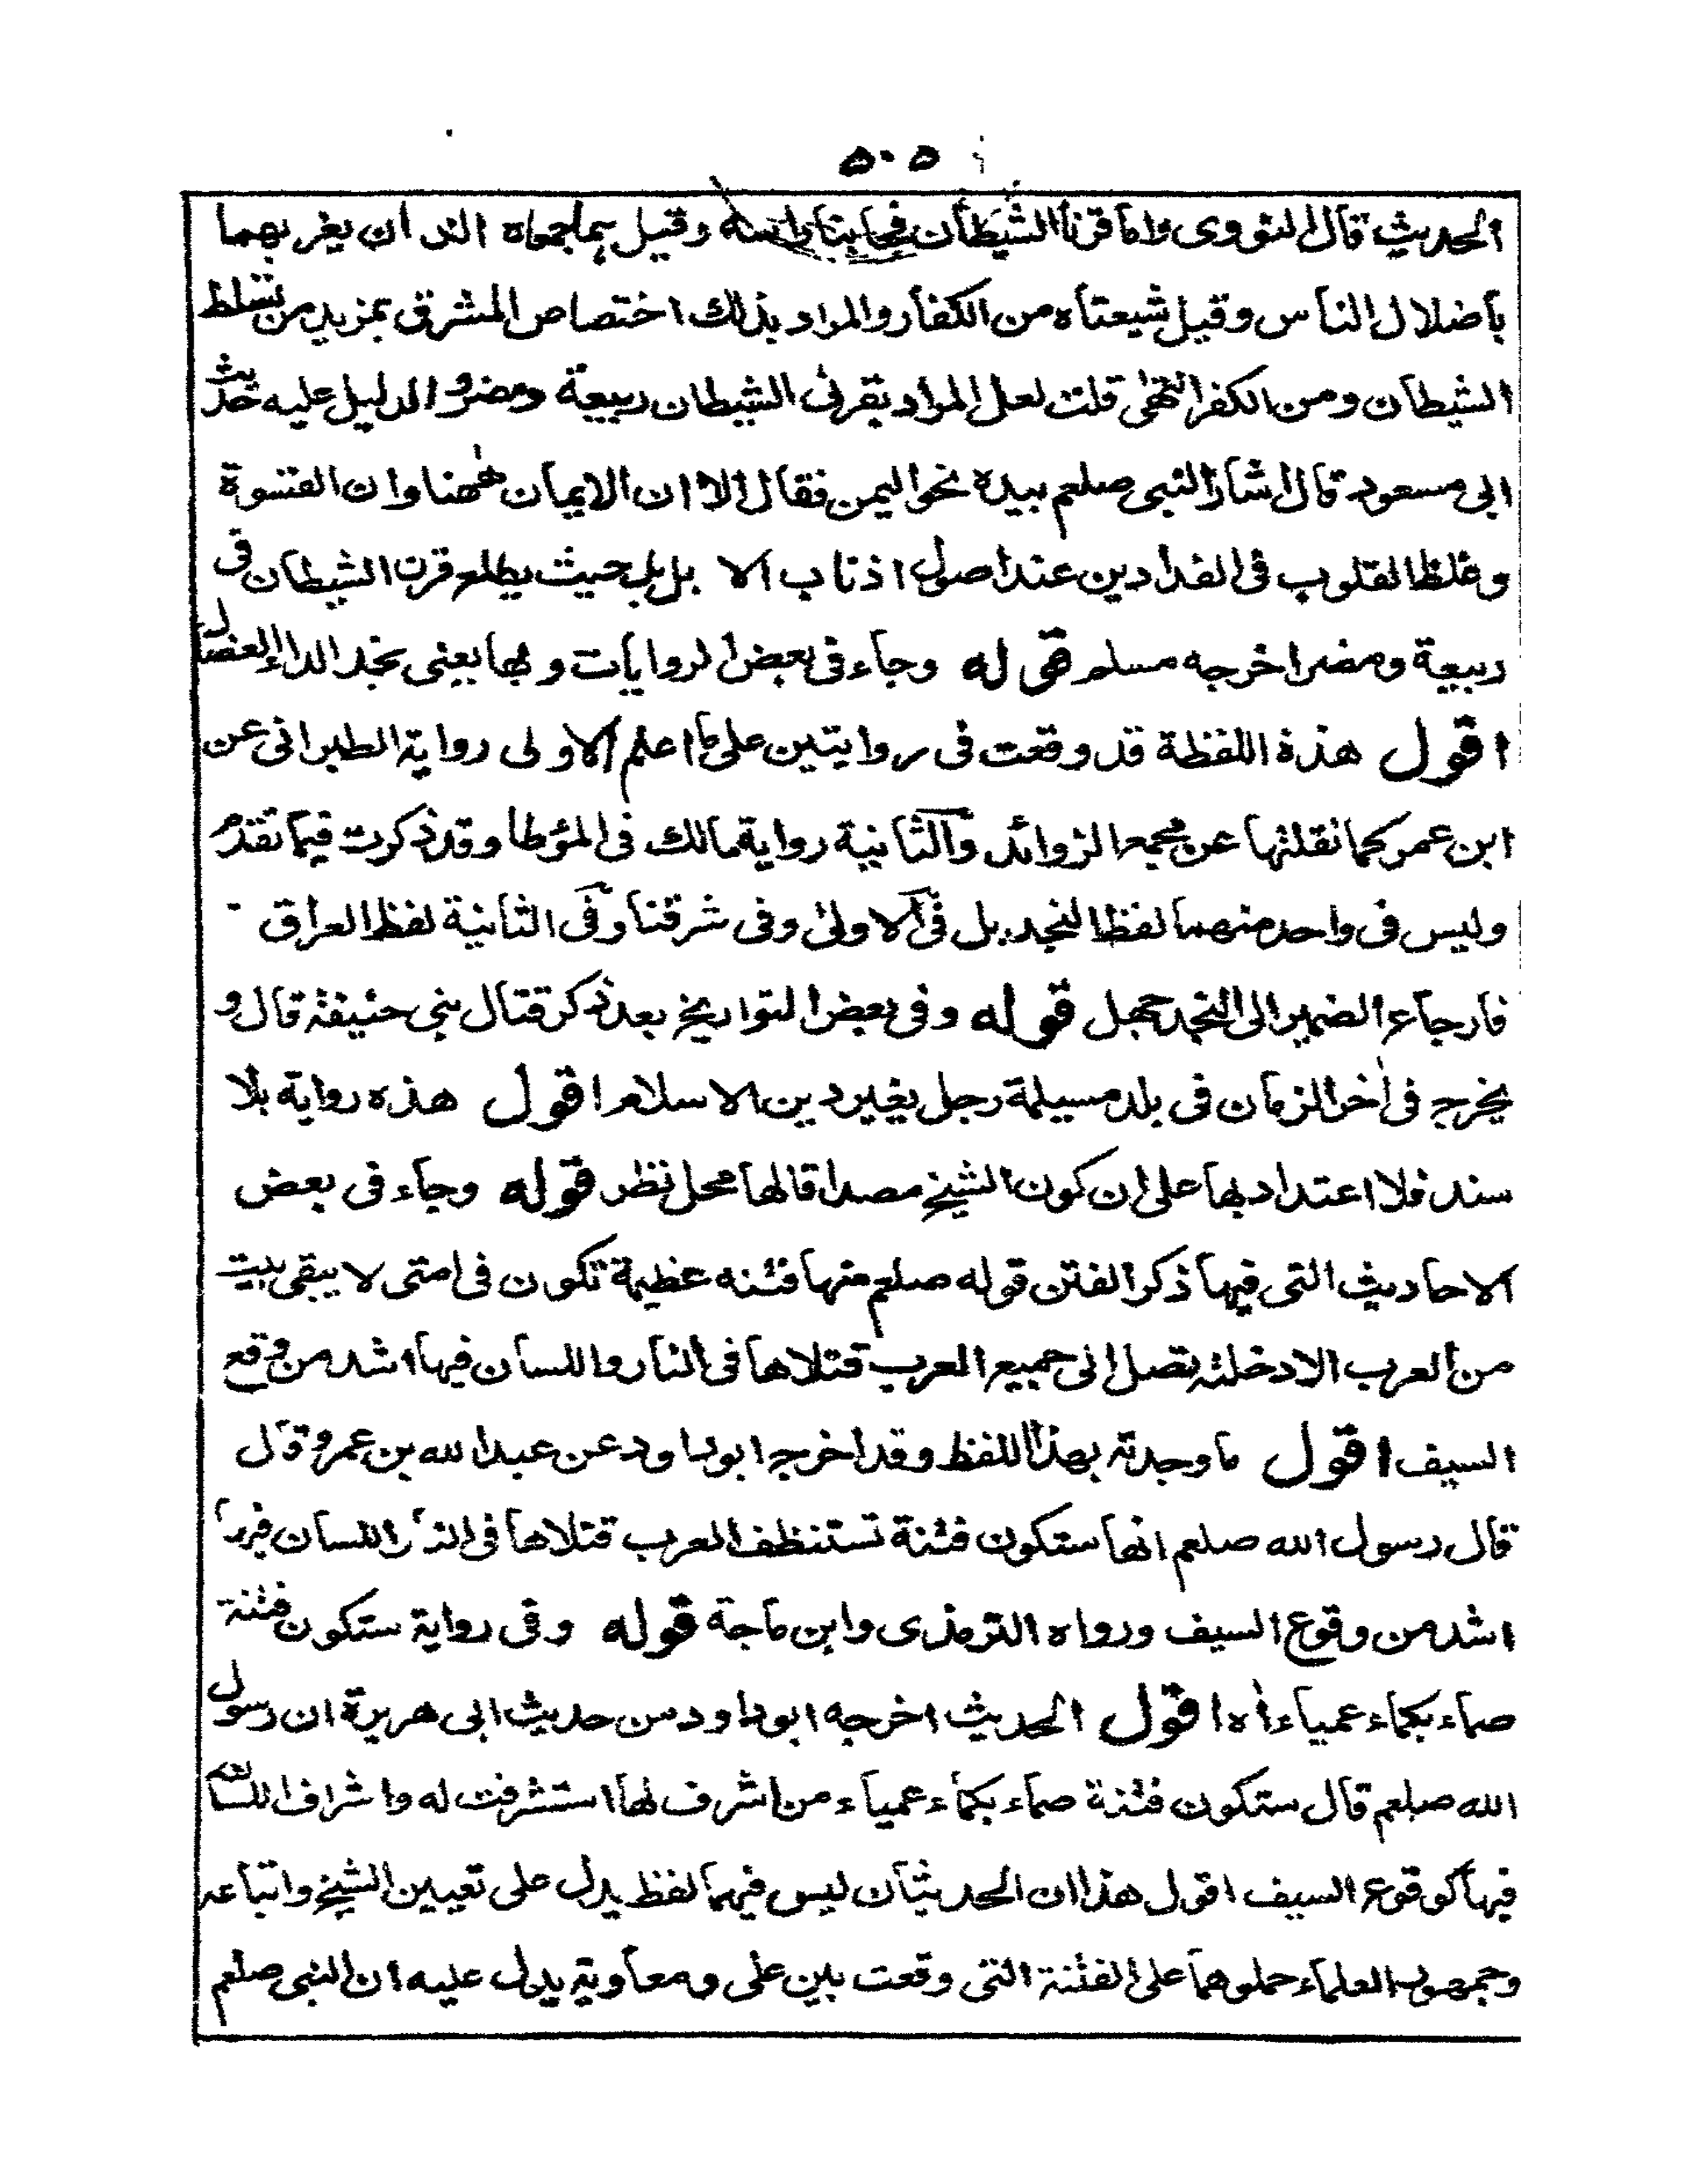 ٥٠٥
الحديث قال النووى واما قرنا الشيطان فجانبا راسه وقيل هما جمعاه اللذان يغر بهما
باضلال الناس وقيل شيعتاه من الكفار والمراد بذلك اختصاص المشرق بمزيد من تسلط
الشيطان ومن الكفر انتهى قلت لعل المراد بقرنى الشيطان ربيعة ومضر والدليل عليه حديث
ابى مسعود قال اشار النبى صلعم بيده نحو اليمن فقال الا ان الايمان ههنا وان القسوة
وغلظ القلوب فى الفدادين عند اصول اذناب الا بل بل حيث يطلع قرن الشيطان فى
ربيعة ومضر اخرجه مسلم قوله وجاء فى بعض الروايات وبها يعنى نجد الداء العضال
اقول هذه اللفظة قد وقعت فى روايتين على ما اعلم الاولى رواية الطبرانى عن
ابن عمر كما نقلتها عن مجمع الزوائد والثانية رواية مالك فى المؤطا وقد ذكرت فيما تقدم
وليس فى واحد منهما لفظ النجد بل فى الاولى وفى شرقنا وفى الثانية لفظ العراق
فارجاع الضمير الى النجد جهل قوله وفى بعض التواريخ بعد ذكر قتال بنى حنيفة قال و
يخرج فى اخر الزمان فى بلد مسيلمة رجل يغير دين الاسلام اقول هذه رواية بلا
سند فلا اعتداد بها على ان كون الشيخ مصداقا لها محل نظر قوله وجاء فى بعض
الاحاديث التى فيها ذكر الفتن قوله صلعم منها فتنه عظيمة تكون فى امتى لا يبقى بيت
من العرب الا دخلته تصل الى جميع العرب قتلاها فى النار واللسان فيها اشد من وقع
السيف اقول ما وجدته بهذا اللفظ وقد اخرجه ابوداود عن عبد الله بن عمرو قال
قال رسول الله صلعم انها ستكون فتنة تستنظف العرب قتلاها فى النار اللسان فيها
اشد من وقوع السيف ورواه الترمذى وابن ماجة قوله وفى رواية ستكون فتنة
صماء بكماء عمياء اه اقول الحديث اخرجه ابوداود من حديث ابى هريرة ان رسول
الله صلعم قال ستكون فتنة صماء بكماء عمياء من اشرف لها استشرفت له واشراف اللسان
فيها كوقوع السيف اقول هذا ان الحديثان ليس فيهما لفظ يدل على تعيين الشيخ واتباعه
وجمهور العلماء حملوهما على الفتنة التى وقعت بين على ومعاوية يدل عليه ان النبى صلعم